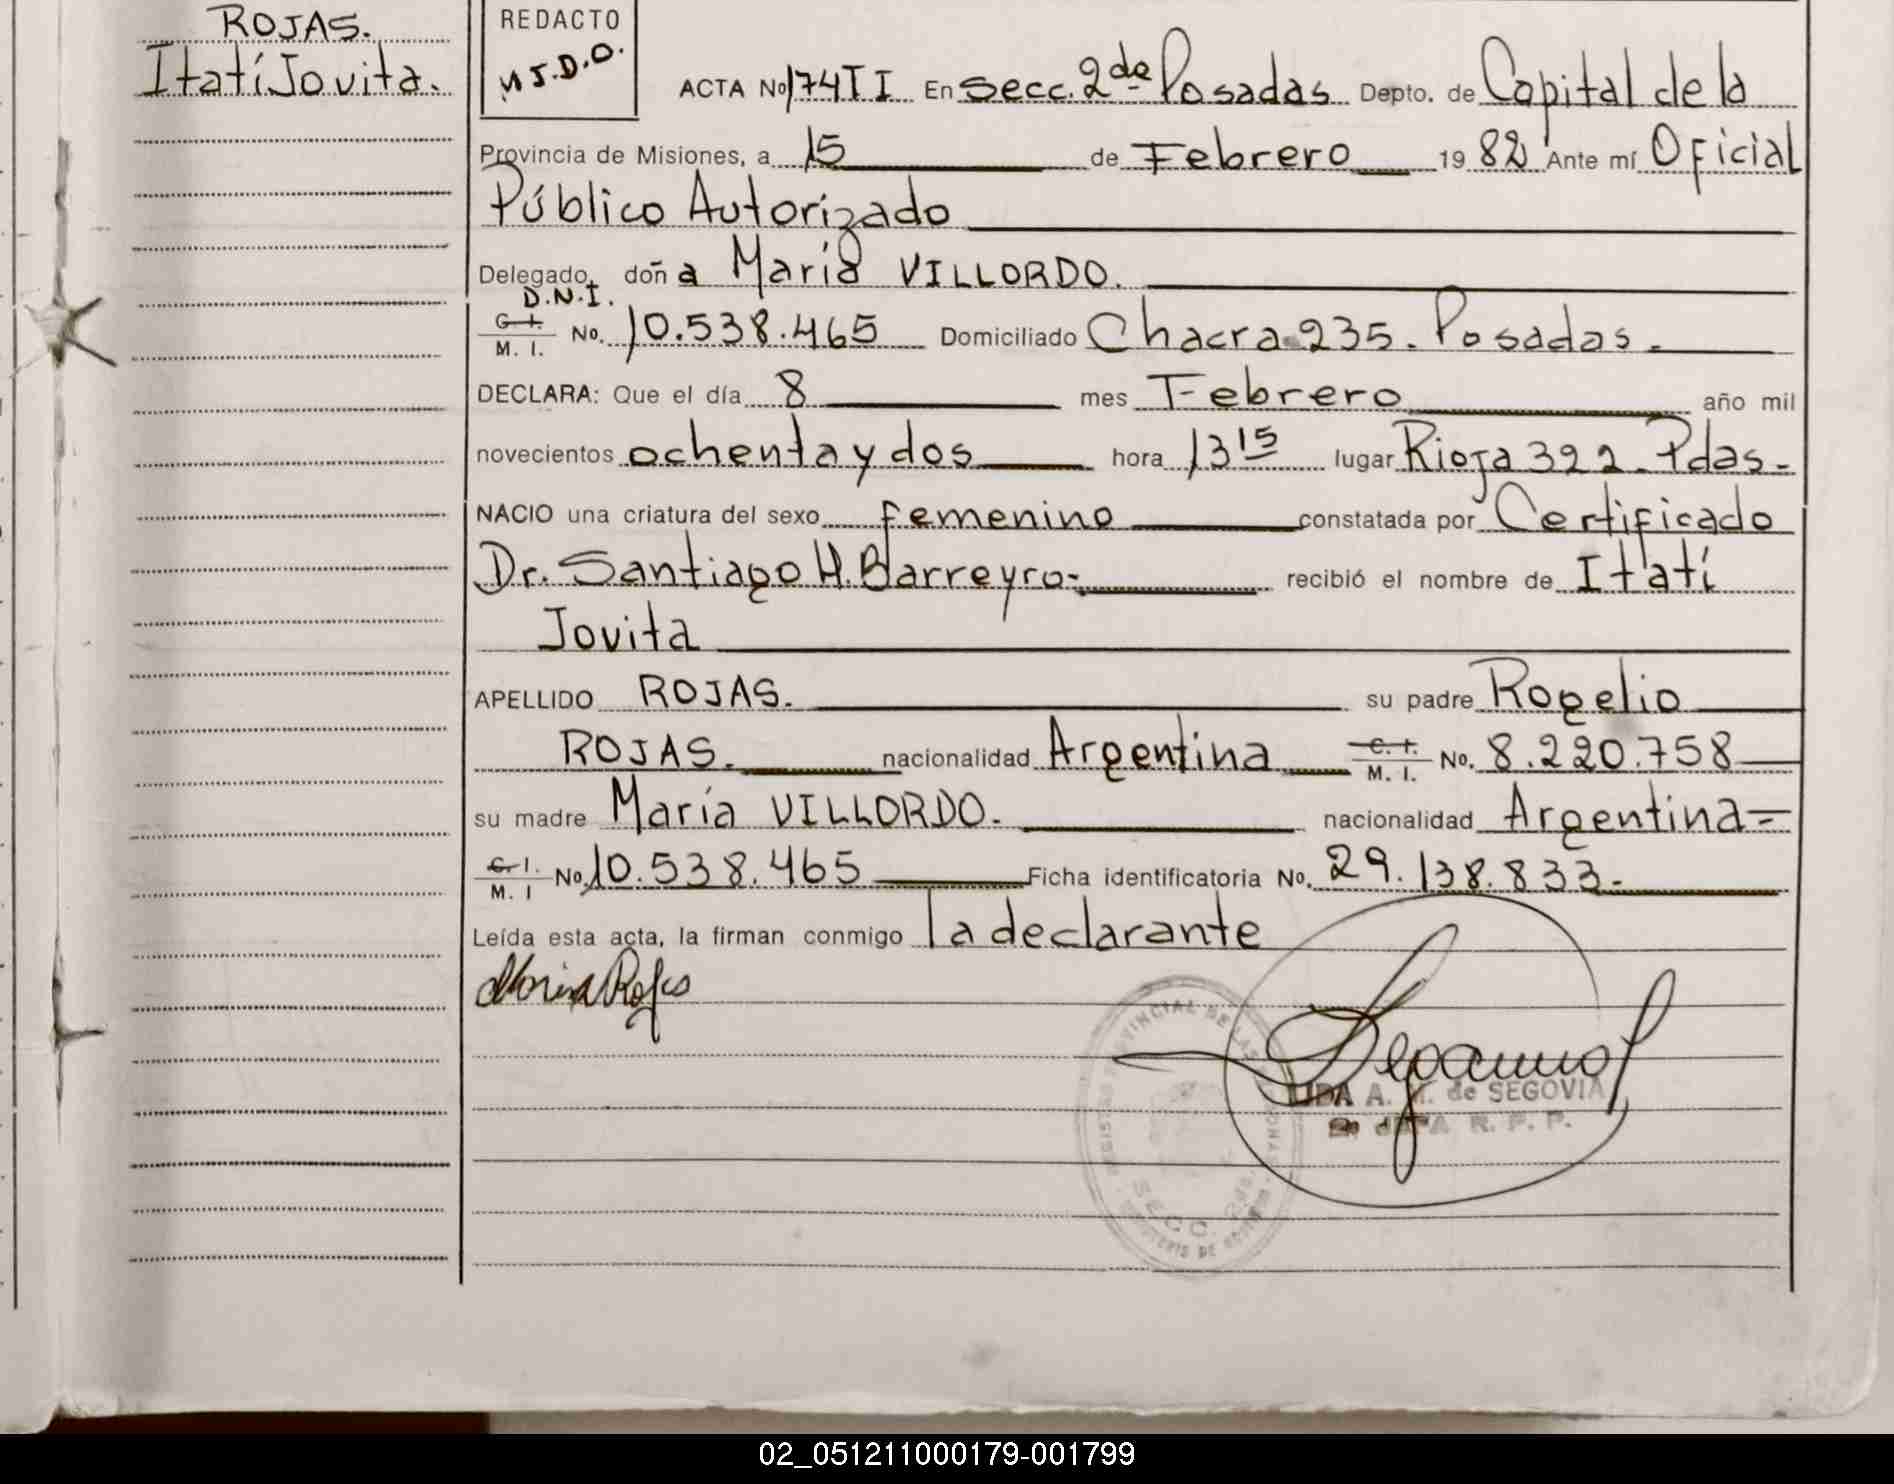 ROJAS.
Itatí Jovita.
REDACTO
M J.D.O.
ACTA No 174 II En Secc. 2da Posadas Depto. de Capital de la
Provincia de Misiones, a 15 de Febrero 19 82 Ante mí Oficial
Público Autorizado
Delegado, doña María VILLORDO.
D.N.I.
C. I. M. I. No. 10.538.465 Domiciliado Chacra 235. Posadas.
DECLARA: Que el día 8 mes Febrero año mil
novecientos ochenta y dos hora 13 15 lugar Rioja 392. Pdas.
NACIO una criatura del sexo femenino constatada por Certificado
Dr. Santiago H. Barreyro- recibió el nombre de Itatí
Jovita
APELLIDO ROJAS. su padre Rogelio
ROJAS. nacionalidad Argentina C. I. M. I. No. 8.220.758
su madre María VILLORDO. nacionalidad Argentina
C. I. M. I No. 10.538.465 Ficha identificatoria No. 29.138.833.
Leída esta acta, la firman conmigo la declarante
María Rojas
A. M. de SEGOVIA
JEFA R. P. P.
REGISTRO PROVINCIAL DE LAS PERSONAS
SECC. 2da.
02_051211000179-001799